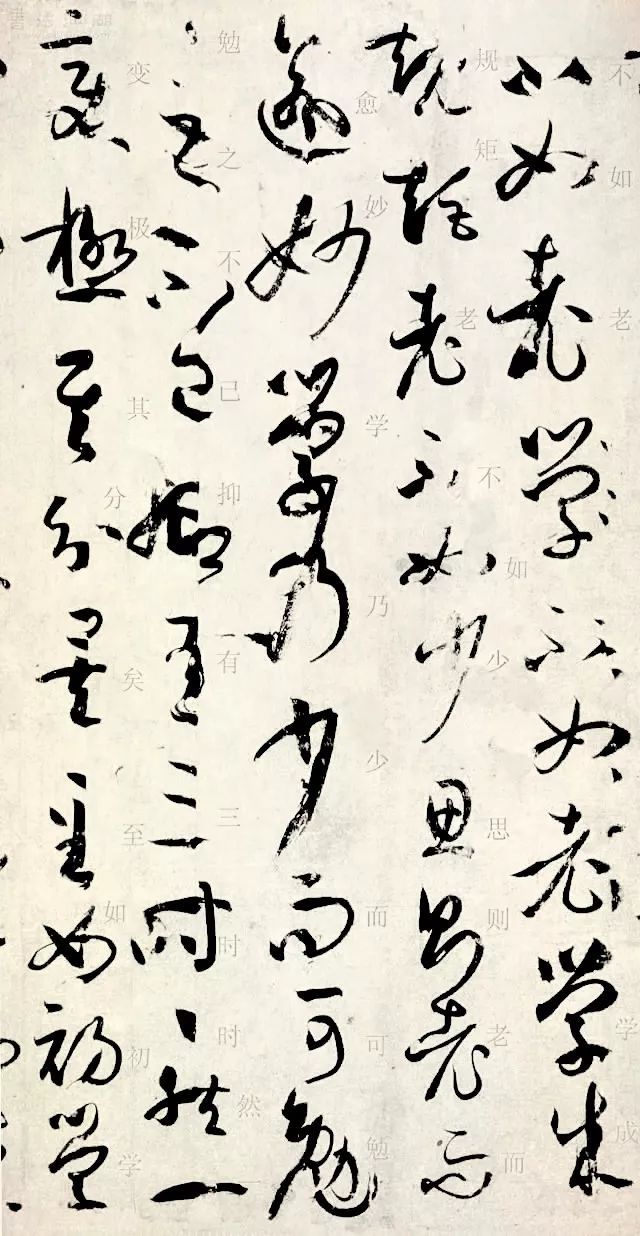 不如老學不如老學成
不如老学成
規矩老不如少思則老而
规矩老不如少思则老而
逾妙學乃少而可勉
愈妙学乃少而可勉
々之不已抑有三時々然一
勉之不已抑有三时时然一
變極其分矣至如初學
变极其分矣至如初学